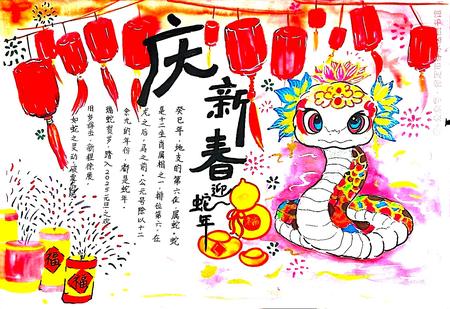 庆新春
迎蛇年
癸巳年，地支的第六在，属蛇。蛇
是十二生肖属相之一，排位第六，在
龙之后，马之前，公元号除以十二
余九的年份，都是蛇年。
瑞蛇贺岁，踏入2025元旦之旅
旧岁辞去，新程徐展
如蛇之灵动，破雾
福
福